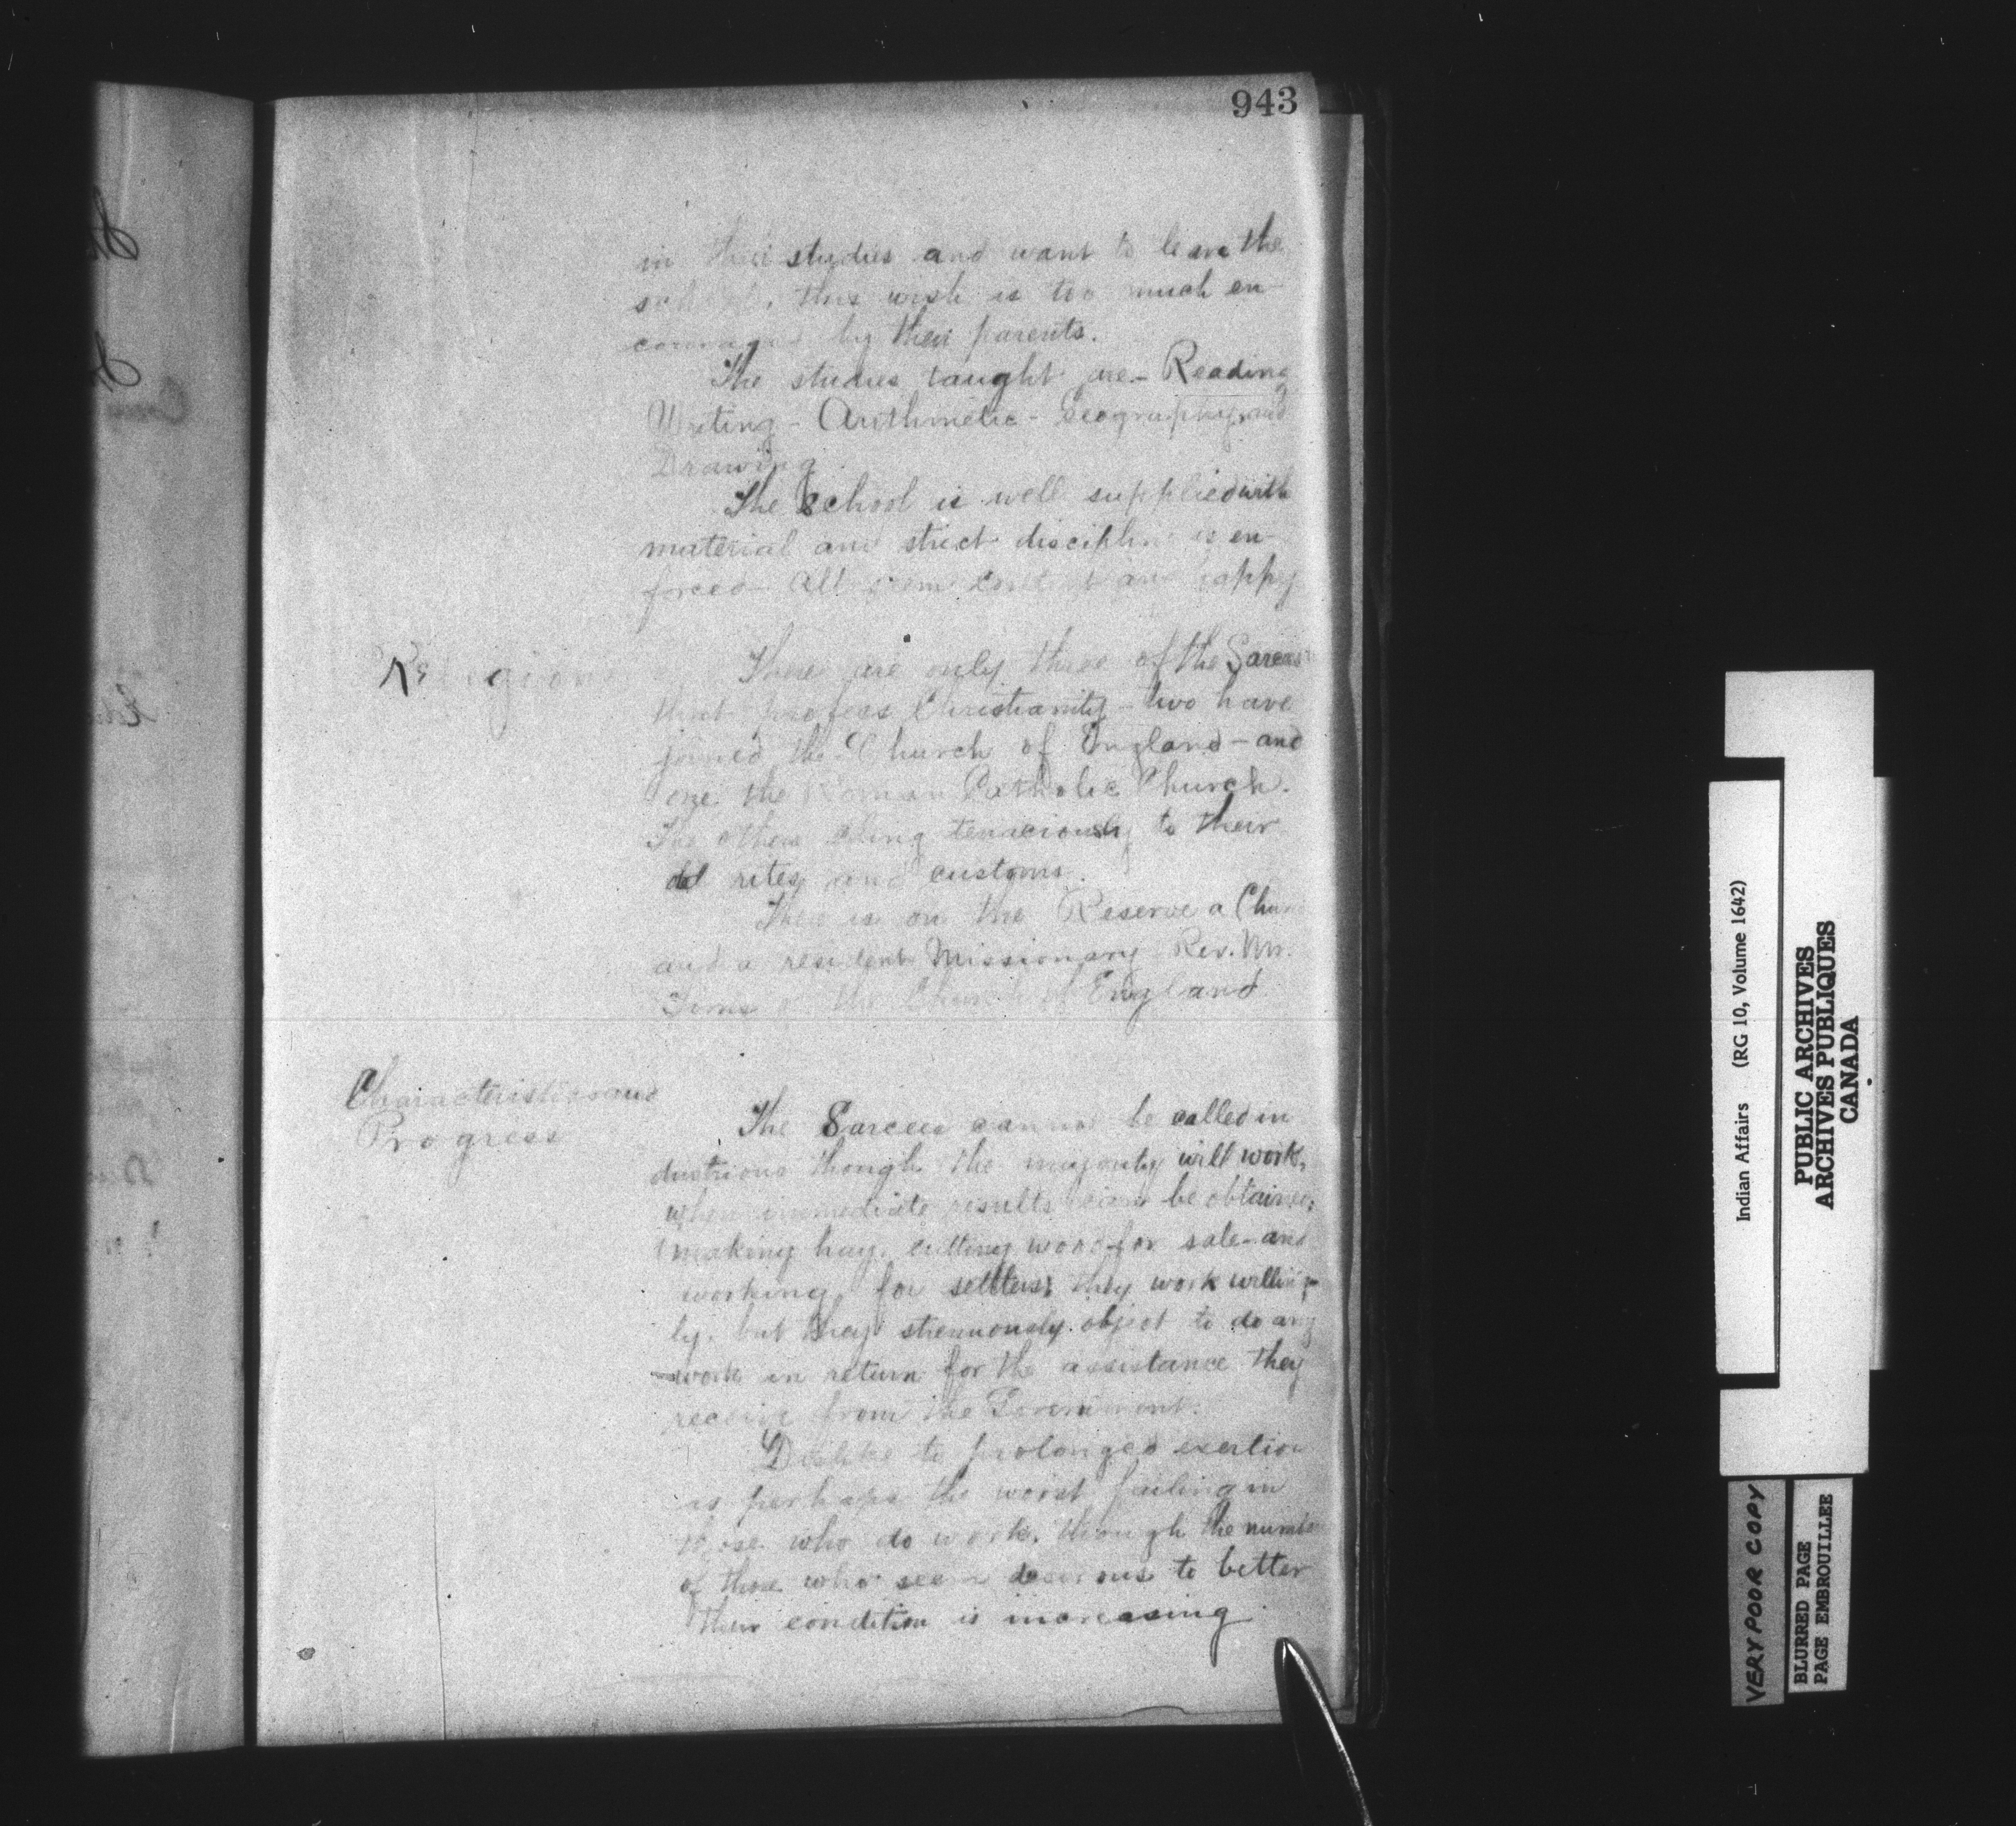 943
in their studies and want to leave the
school, this wish is too much en-
couraged by their parents.
The studies taught are - Reading
Writing - Arithmetic - Geography and
Drawing.
The School is well supplied with
material and strict discipline is en-
forced - All seem and happy
Religion
There are only three of the Sarcees
that profess Christianity - two have
joined the Church of England - and
one the Roman Catholic Church.
The others cling tenaciously to their
old rites and customs.
There is on the Reserve a Church
and a resident Missionary Rev. Mr.
Tims of the Church of England
Characteristics and
Progress
The Sarcees cannot be called in
dustrious though the majority will work,
when immediate results can be obtained,
making hay, cutting wood for sale - and
working for settlers, they work willing-
ly. but they strenuously object to do any
work in return for the assistance they
receive from the Government.
Dislike to prolonged exertion
is perhaps the worst failing in
those who do work, though the number
of those who seem desirous to better
their condition is increasing.
Indian Affairs (RG 10, Volume 1642)
PUBLIC ARCHIVES
ARCHIVES PUBLIQUES
CANADA
VERY POOR COPY
BLURRED PAGE
PAGE EMBROUILLEE